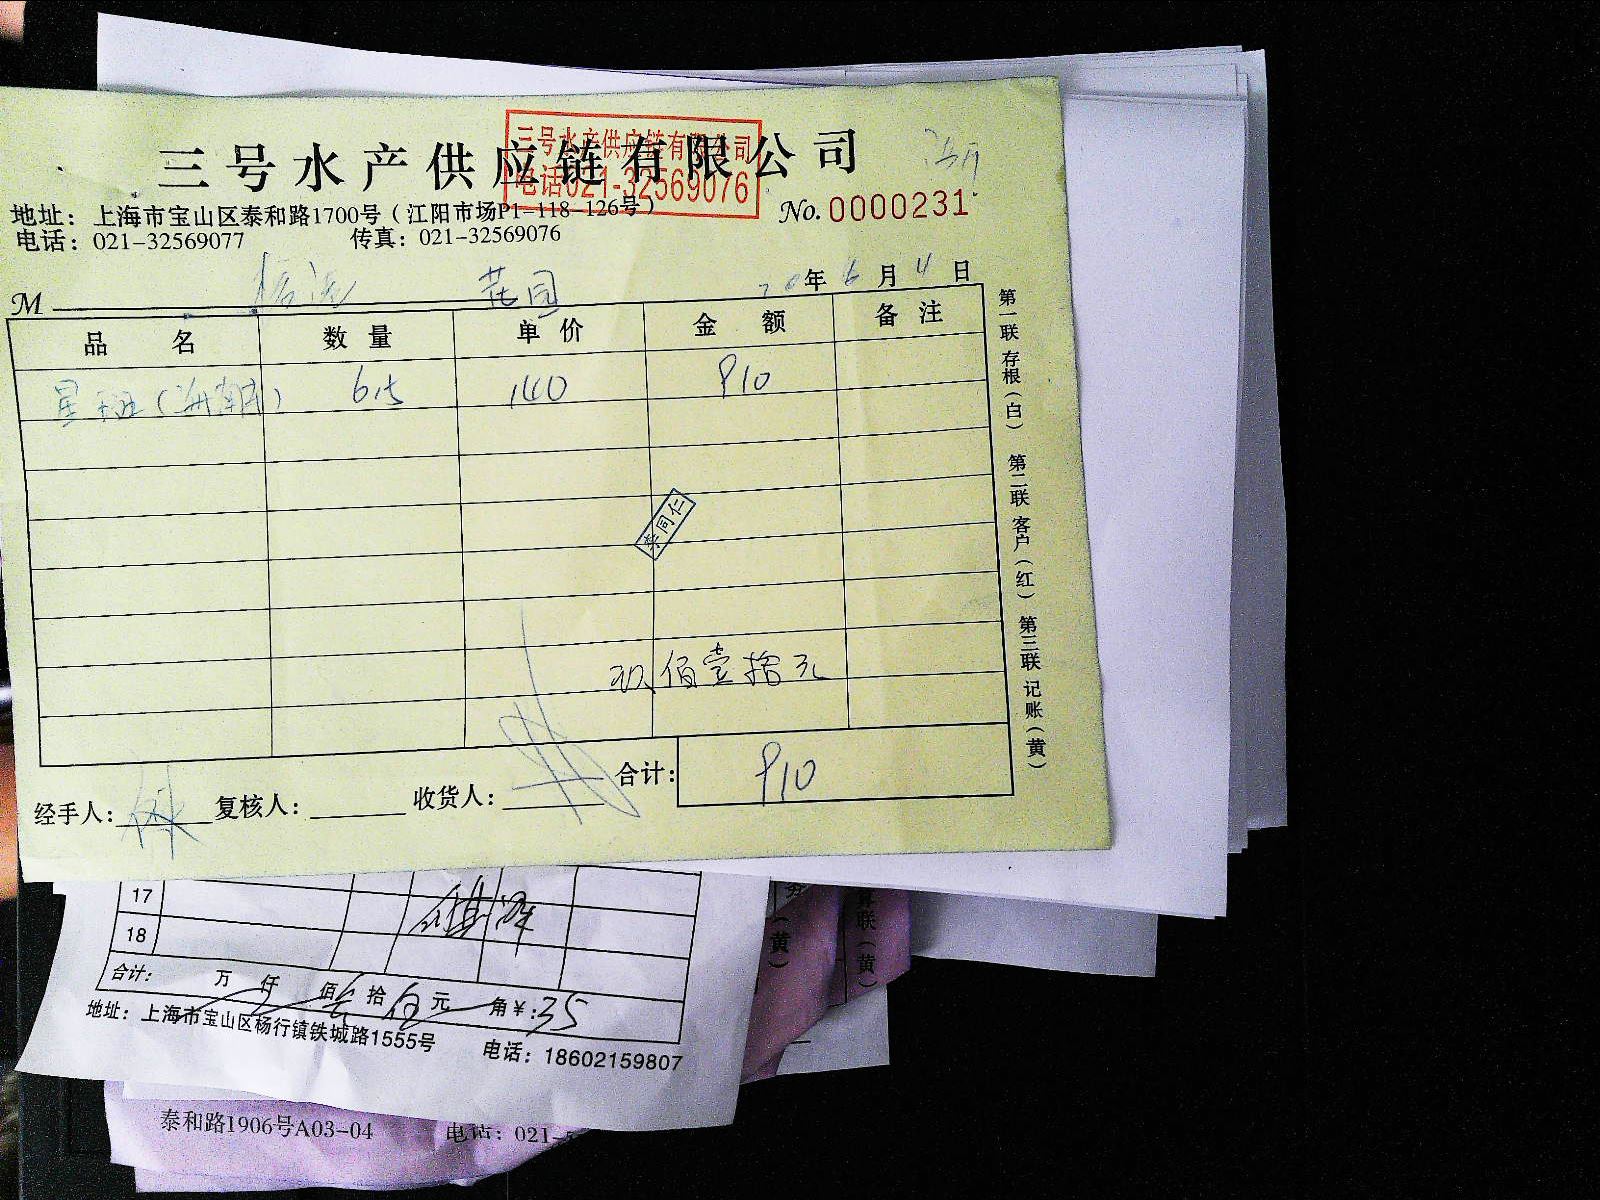 三号水产供应链有限公司
三号水产供应链有限公司
电话021-32569076
地址：上海市宝山区泰和路1700号（江阳市场P1-118-126号）
No. 0000231
电话：021-32569077 传真：021-32569076
M 花园 20年6月4日
品名 数量 单价 金额 备注
星斑（海南） 6.5 140 910
同仁
玖佰壹拾元
合计： 910
经手人： 复核人： 收货人：
第一联 存根（白） 第二联 客户（红） 第三联 记账（黄）
17
18
合计： 万 仟 佰 拾 元 角 ¥：35
地址：上海市宝山区杨行镇铁城路1555号
电话：18602159807
（黄）
联（黄）
泰和路1906号A03-04 电话：021-